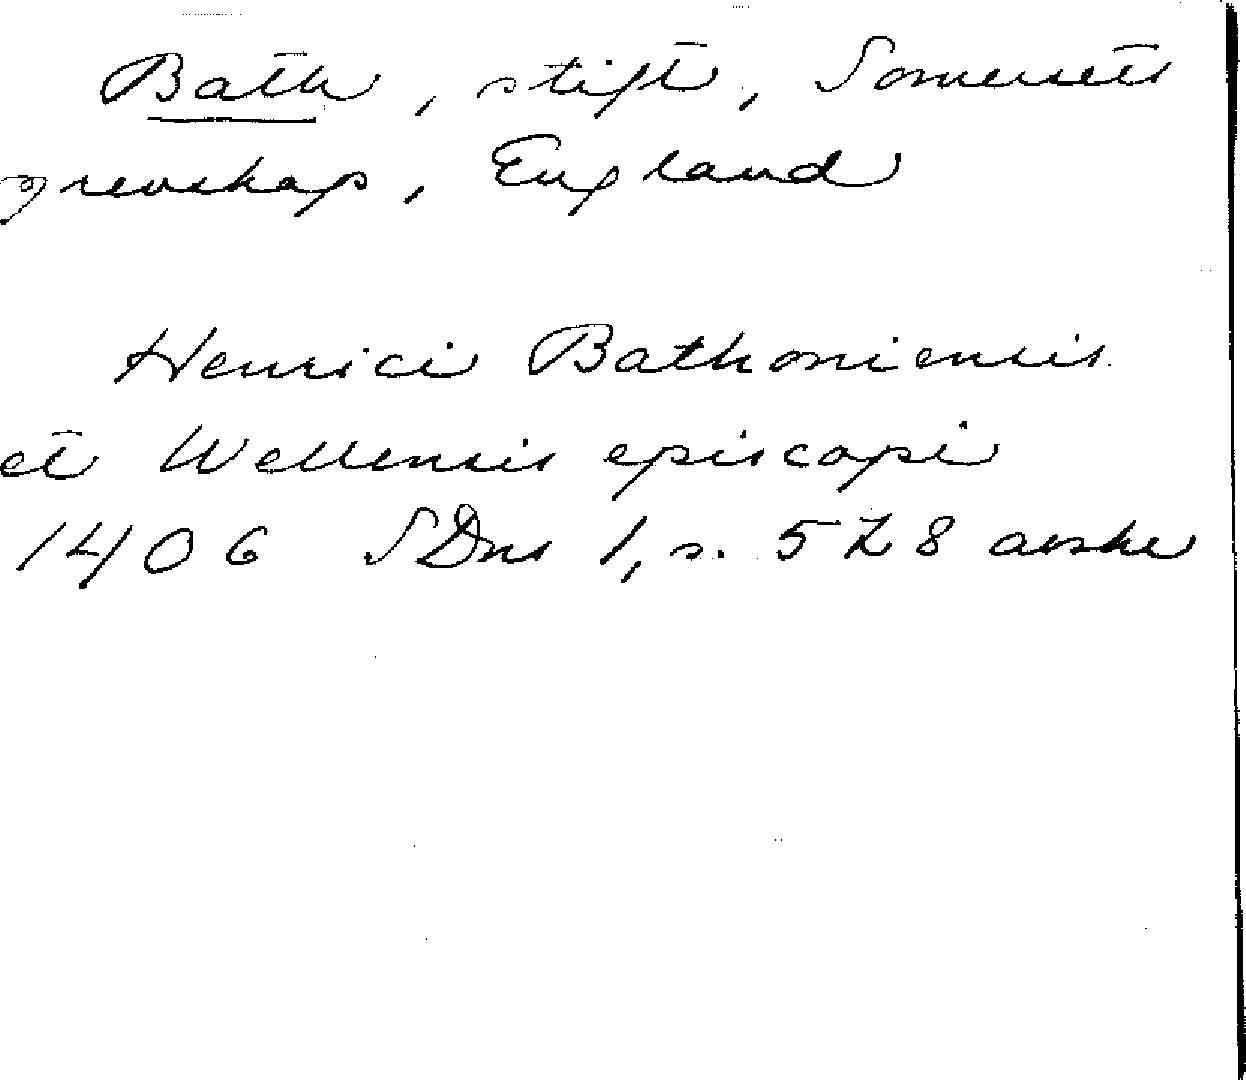 Bath, stift, Somersets
grevskap, England
Henrici Bathoniensis
et Wellensis episcopi
1406 SDns 1, s. 528 avskr